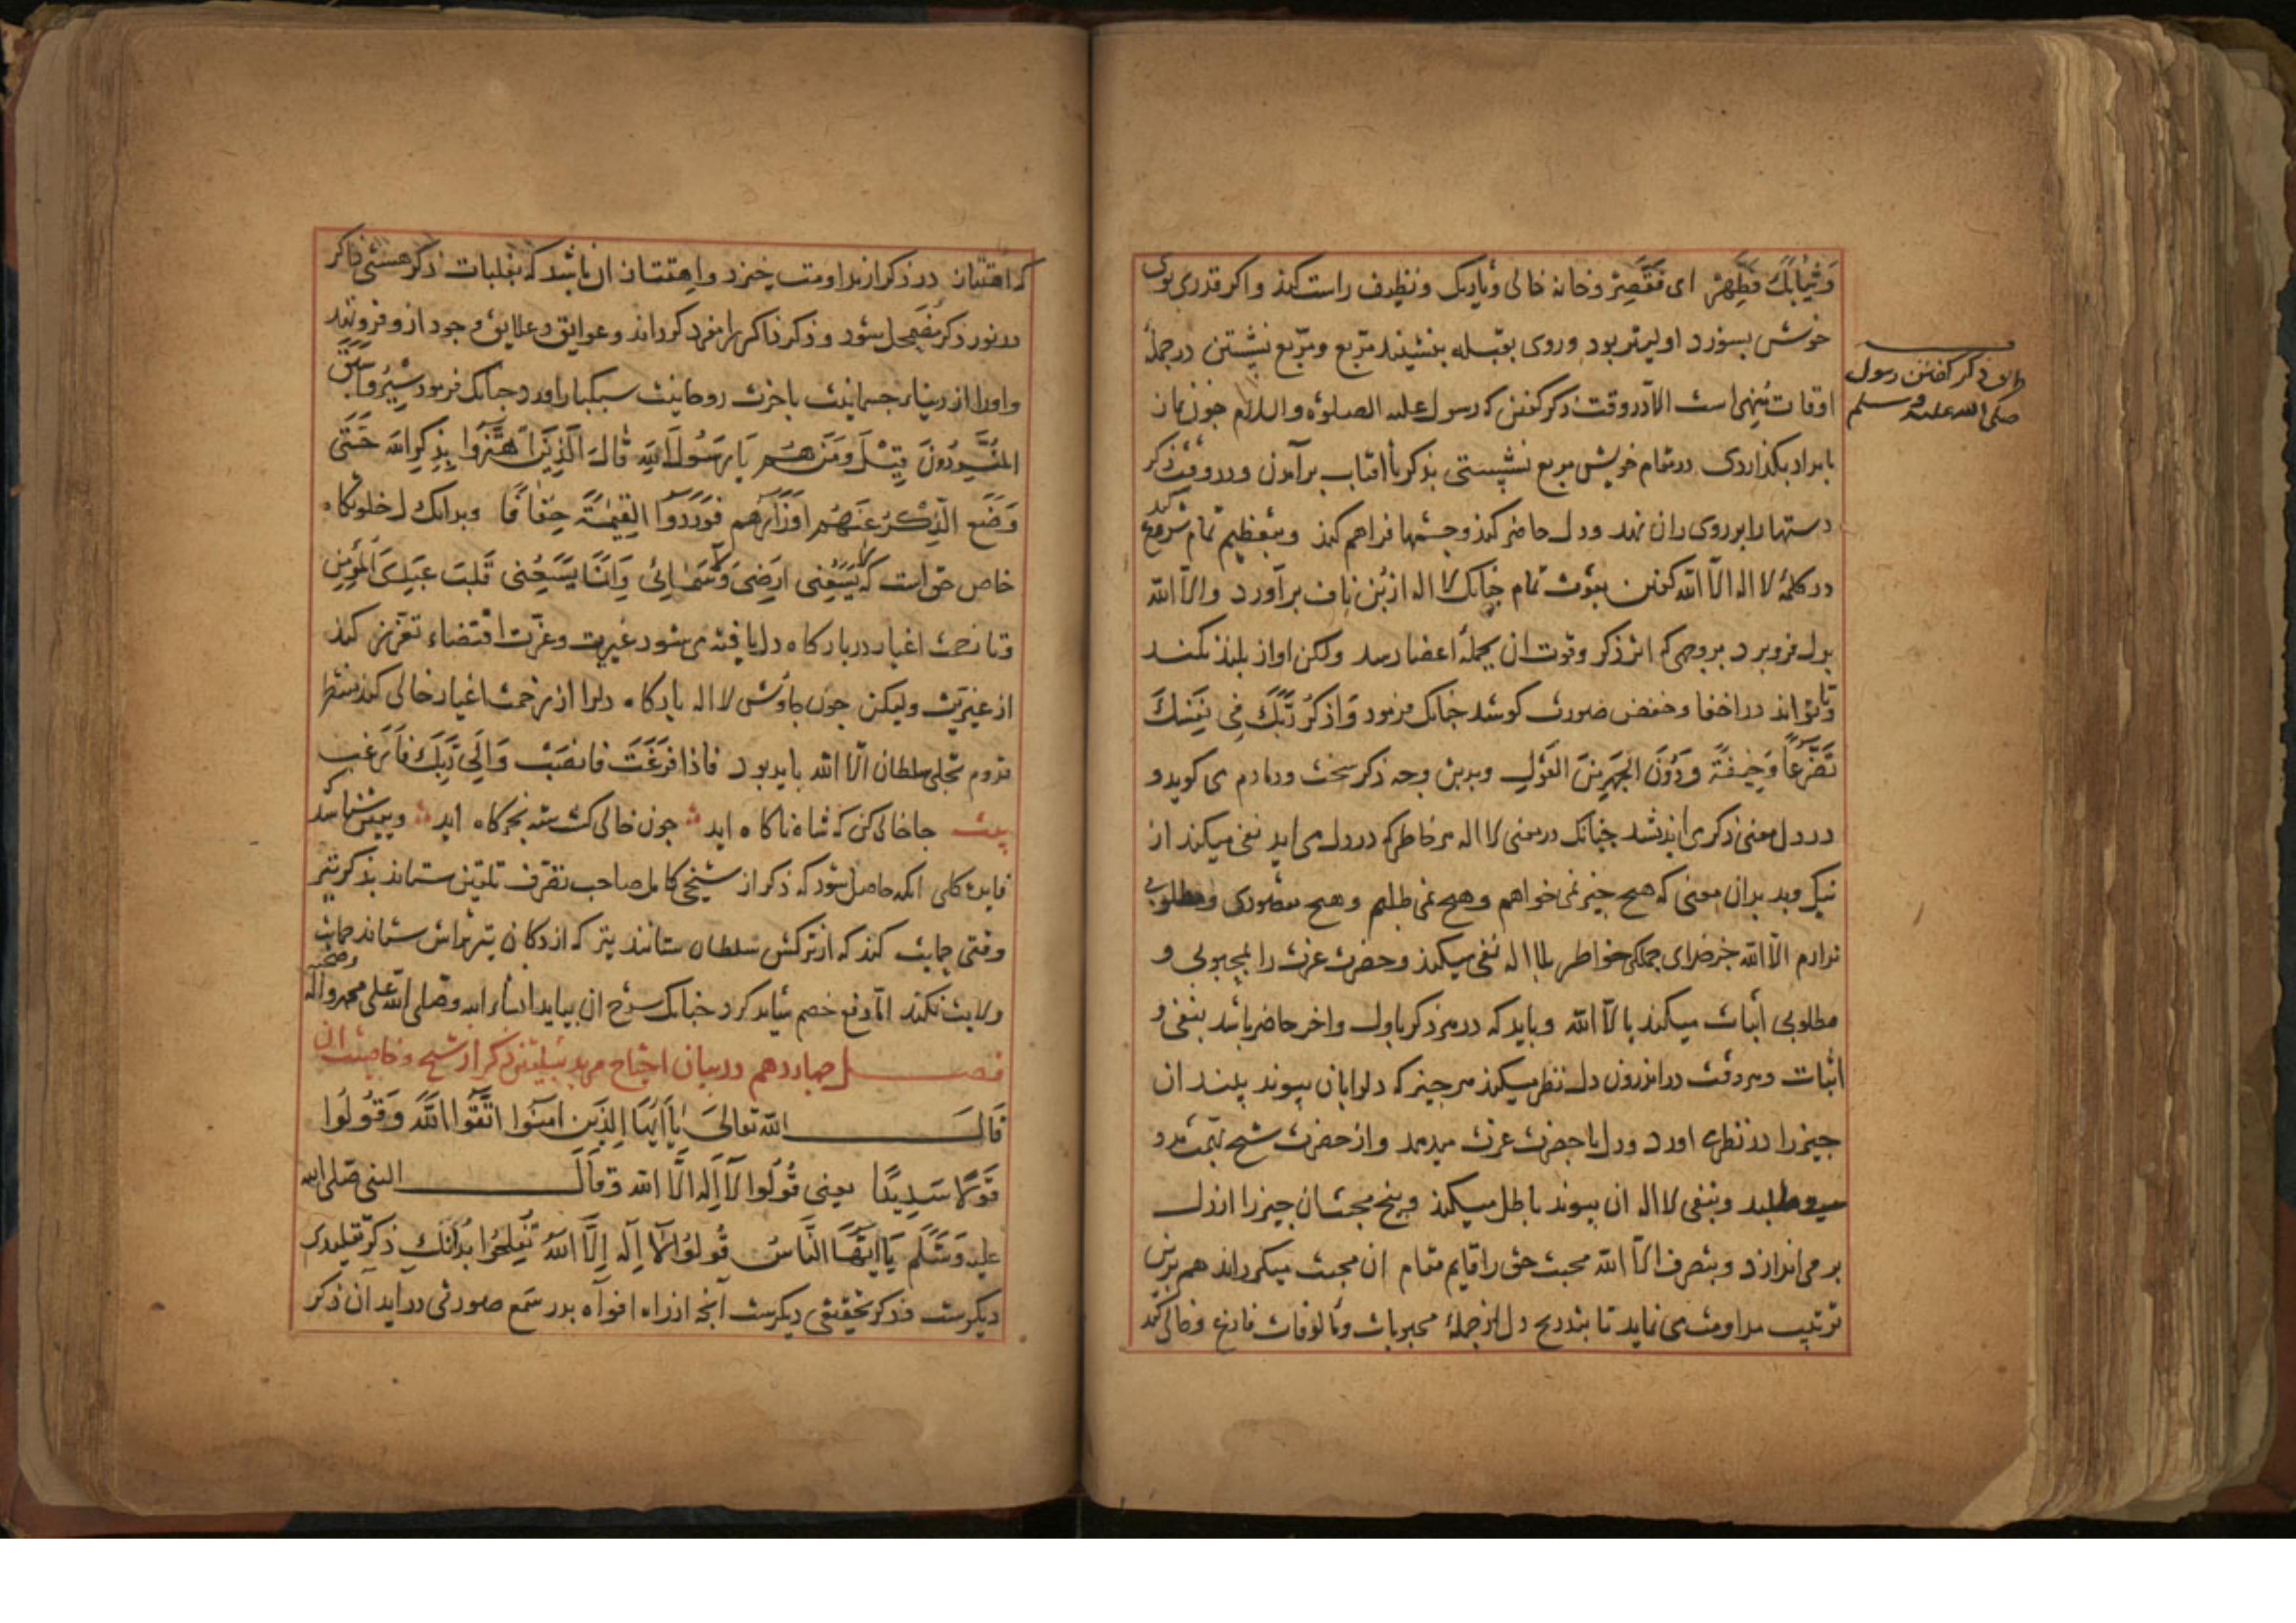 وَثِيَابَكَ فَطَهِّرْ ای فَقَصِّرْ وخانه خالی وتاریک ونظیف راست کند واکر قدری بوی
خوش بسوزد اولیتر بود وروی بقبله بنشیند مربّع ومربّع نشستن درجملهٔ
اوقات منهی است الّا دروقت ذکر کفتن که رسول علیه الصلوٰه والسلام جون نماز
بامداد بکذاردی درمقام خویش مربع نشپستی بذکر تا افتاب برآمدن ودروقت ذکر
دستها را برروی ران نهد ودل حاضر کند وجشمها فراهم کند وبتعظیم تمام شروع کند
درکلمهٔ لا اله الّا الله کفتن بقوت تمام جنانک لا اله ازبُن ناف برآورد والّا الله
بدل فروبرد بروجهی که اثر ذکر وقوت ان بجملهٔ اعضا رسد ولکن اواز بلند نکند
وتا تواند دراخفا وخفض صوت کوشد جنانک فرمود وَاذكُر رَّبَّكَ فِي نَفْسِكَ
تَضَرُّعاً وَخِيفَةً وَدُونَ الجَهرِ مِنَ القَولِ وبدین وجه ذکر سخت ودمادم می کوید و
دردل معنی ذکر می اندیشد جنانک درمعنی لا اله هر خاطر که دردل می اید نفی میکند از
نیک وبد بدان معنی که هیج جیز نمی خواهم وهیج نمی طلبم وهیج مقصودی ومطلوبی
ندارم الّا الله جز خدای جملکی خواطر بلا اله نفی میکند وحضرت عزت را بمحبوبی و
مطلوبی اثبات میکند بالّا الله وباید که درهر ذکر باول واخر حاضر باشد بنفی و
اثبات وهر وقت دراندرون دل نظر میکند هر جیز که دلرا بآن پیوند بیند ان
جیز را درنظر اورد ودل باحضرت عزت میدهد وازحضرت شیخ همّت مدد
میطلبد وبنفی لا اله ان پیوند باطل میکند وبیخ محبت ان جیز را ازدل
بر می اندازد وبتصرف الّا الله محبت حق را قایم مقام ان محبت میکرداند هم برین
ترتیب مداومت می نماید تا بتدریج دل ازجملهٔ محبوبات ومألوفات فارغ وخالی کند
ذکر کفتن رسول
صلی الله علیه وسلم
که اهتتان درذکر از مداومت خیزد واهتتان ان باشد که بغلبات ذکر هستی ذاکر
درنور ذکر مضمحل شود وذکر ذاکر را مفرد کرداند وعوایق وعلایق وجود ازو فرو نهد
واورا از دنیاء جسمانیت باخرت روحانیت سبکبار اورد جنانک فرمود سِيرُوا سَبَقَ
المُفَرِّدُونَ قِيْلَ وَمَن هُم يَا رَسُولَ اللهِ قَالَ اَلَّذِينَ اهْتَزُّوا بِذِكِر الله حَتّى
وَضَعَ الذِّكْرُ عَنْهُم اَوْزَارَهُم فَوَرَدُوا القِيٰمَةَ خِفَافًا وبدانک دل خلوتکاه
خاص حق است که لَا يَسَعُنِى اَرضِى وَلَا سَمَائِى وَاِنَّمَا يَسَعُنِى قَلبُ عَبْدِىَ المُؤمِنِ
وتا زحمت اغیار دربارکاه دل یافته می شود غیرت وعزّت اقتضاء تعزز کند
از غیریت ولیکن جون جاوش لا اله بارکاه دلرا از زحمت اغیار خالی کند منتظر
قدوم تجلی سلطان الّا الله باید بود فَاذا فَرَغْتَ فَانصَبْ وَاِلَى رَبِّكَ فَارْغَب
بیت جا خالی کن که شاه ناکاه اید جون خالی کشت شه بخرکاه اید وبیقین شناسد که
فایدهٔ کلی انکه حاصل شود که ذکر از شیخی کامل صاحب تصرف تلقین ستاند بذکر تیر
وقتی حمایت کند که ازترکش سلطان ستانند تیر که ازدکان تیر تراش ستانند حمایت
ولایت نکند امّا دفع خصم شاید کرد جنانک شرح ان بیاید انشا الله وصلی الله علی محمد وآله وصحبه
فصل جهاردهم دربیان احتیاج مرید بتلقین ذکر ازشیخ وخاصیت ان
قَالَ الله تعالىَ يَا اَيُّهَا الَّذِينَ اٰمَنُوا اتَّقُوا اللّٰهَ وَقُولُوا
قَوْلًا سَدِيدًا يعنى قُولُوا لَا اِلٰهَ اِلَّا الله وقَالَ النبى صلى الله
عليه وَسَلَّم يَا اَيُّهَا النَّاسُ قُولُوا لَا اِلٰهَ اِلَّا اللهُ تُفلِحُوا بدانک ذکر تقلیدی
دیکرست وذکر تحقیقی دیکرست آنجه ازراه افواه بدر سَمع صورتی دراید آن ذکر